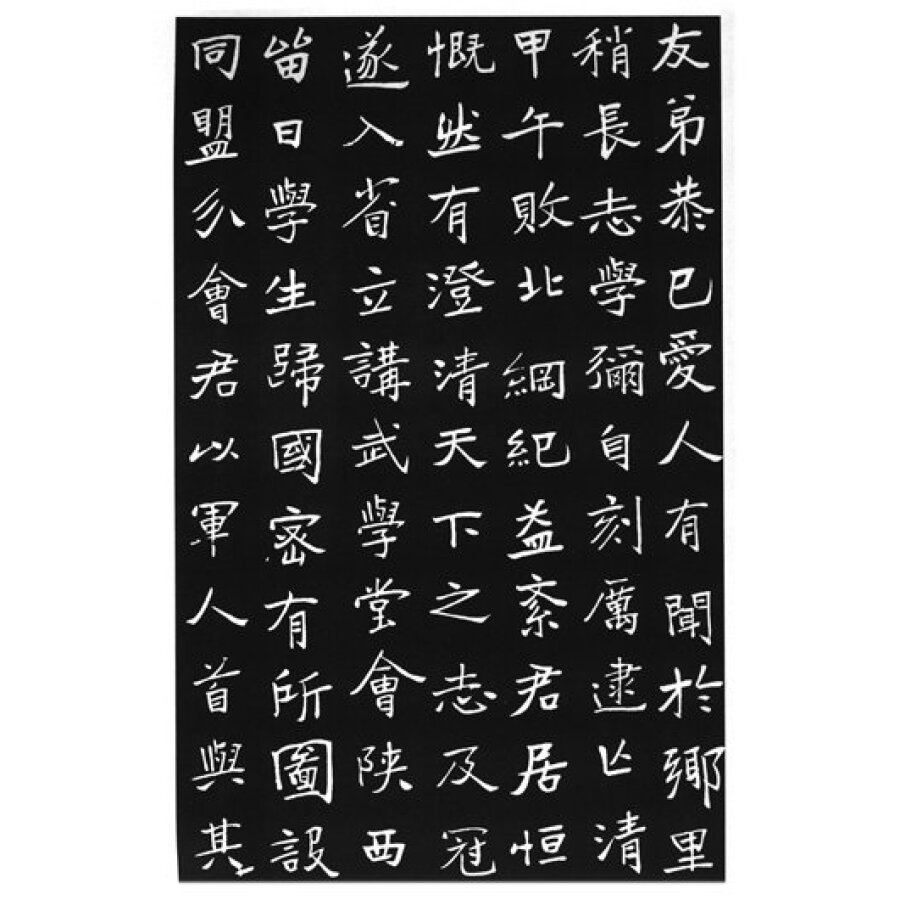 友弟恭己愛人有聞於鄉里
稍長志學彌自刻厲逮亡清
甲午敗北綱紀益紊君居恒
慨然有澄清天下之志及冠
遂入省立講武學堂會陝西
留日學生歸國密有所圖設
同盟分會君以軍人首與其